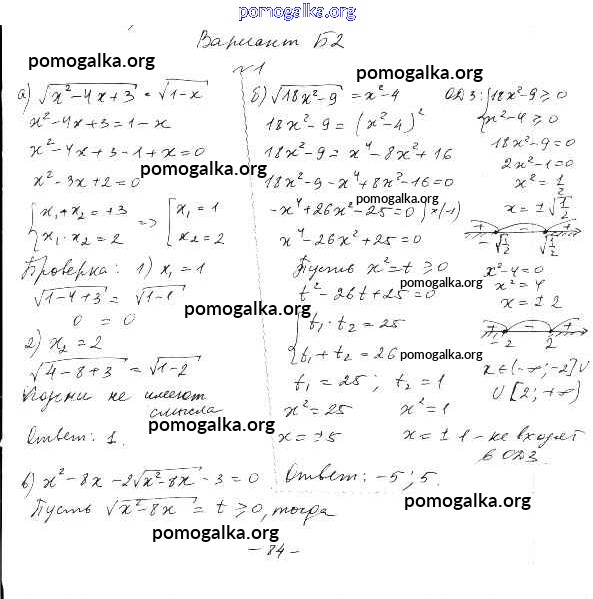 pomogalka.org
Вариант Б2
pomogalka.org
pomogalka.org
№1
а) √(x²-4x+3) = √(1-x)
x²-4x+3=1-x
x²-4x+3-1+x=0
pomogalka.org
x²-3x+2=0
{x₁+x₂=+3 => [x₁=1
{x₁·x₂=2 [x₂=2
Проверка: 1) x₁=1
√(1-4+3) = √(1-1)
pomogalka.org
0 = 0
2) x₂=2
√(4-8+3) = √(1-2)
Корни не имеют
смысла
pomogalka.org
Ответ: 1.
б) √(18x²-9) = x²-4
18x²-9=(x²-4)²
18x²-9=x⁴-8x²+16
18x²-9-x⁴+8x²-16=0
pomogalka.org
-x⁴+26x²-25=0 | ×(-1)
x⁴-26x²+25=0
Пусть x²=t ≥0
pomogalka.org
t²-26t+25=0
{t₁·t₂=25
{t₁+t₂=26
pomogalka.org
t₁=25; t₂=1
x²=25 x²=1
x=±5 x=±1 - не входят
в ОДЗ.
Ответ: -5; 5.
ОДЗ: {18x²-9≥0
{x²-4≥0
18x²-9=0
2x²-1=0
x²=1/2
x=±√(1/2)
+ - +
-√(1/2) √(1/2)
x²-4=0
x²=4
x=±2
+ - +
-2 2
x∈(-∞;-2]∪
∪[2;+∞)
в) x²-8x-2√(x²-8x)-3=0
Пусть √(x²-8x)=t ≥0, тогда
pomogalka.org
pomogalka.org
-84-